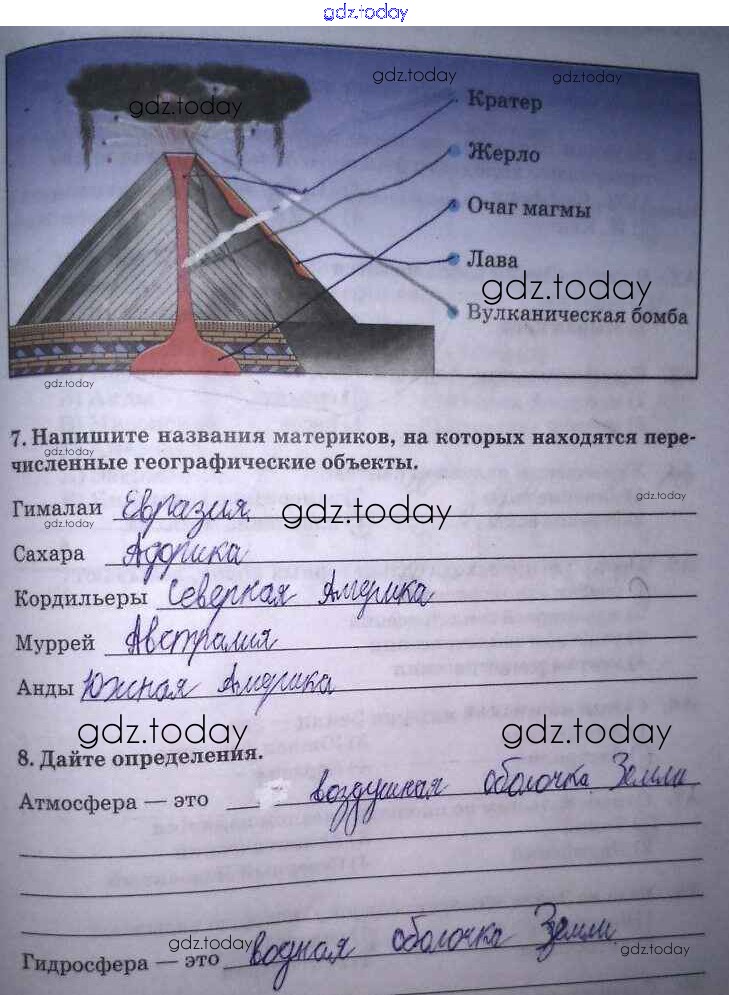 gdz.today
gdz.today
gdz.today
gdz.today
Кратер
Жерло
Очаг магмы
Лава
gdz.today
Вулканическая бомба
gdz.today
7. Напишите названия материков, на которых находятся пере-
численные географические объекты.
gdz.today
gdz.today
Гималаи Евразия
gdz.today
gdz.today
Сахара Африка
Кордильеры Северная Америка
Муррей Австралия
Анды Южная Америка
gdz.today
gdz.today
8. Дайте определения.
Атмосфера — это воздушная оболочка Земли
gdz.today
gdz.today
Гидросфера — это водная оболочка Земли